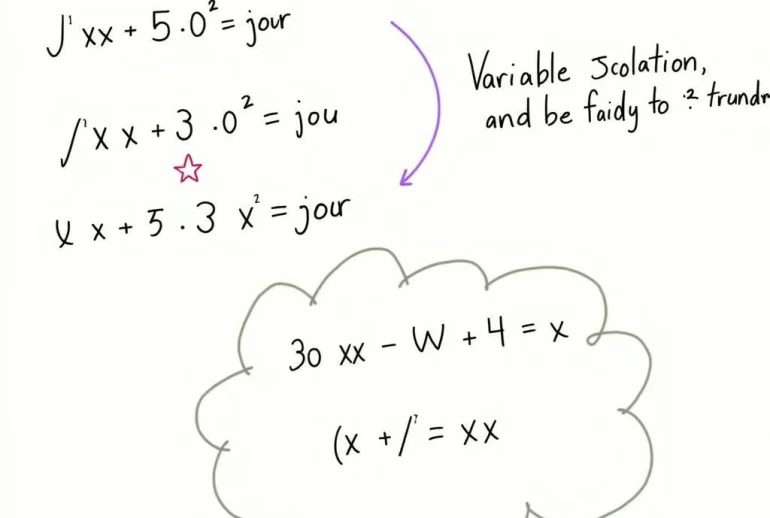 ∫¹ xx + 5·0² = jour
∫¹ x x + 3 ·0² = jou
x + 5 . 3 x² = jour
Variable Scolation,
and be faidy to ? trundr
30 xx - W + 4 = x
(x + /² = xx